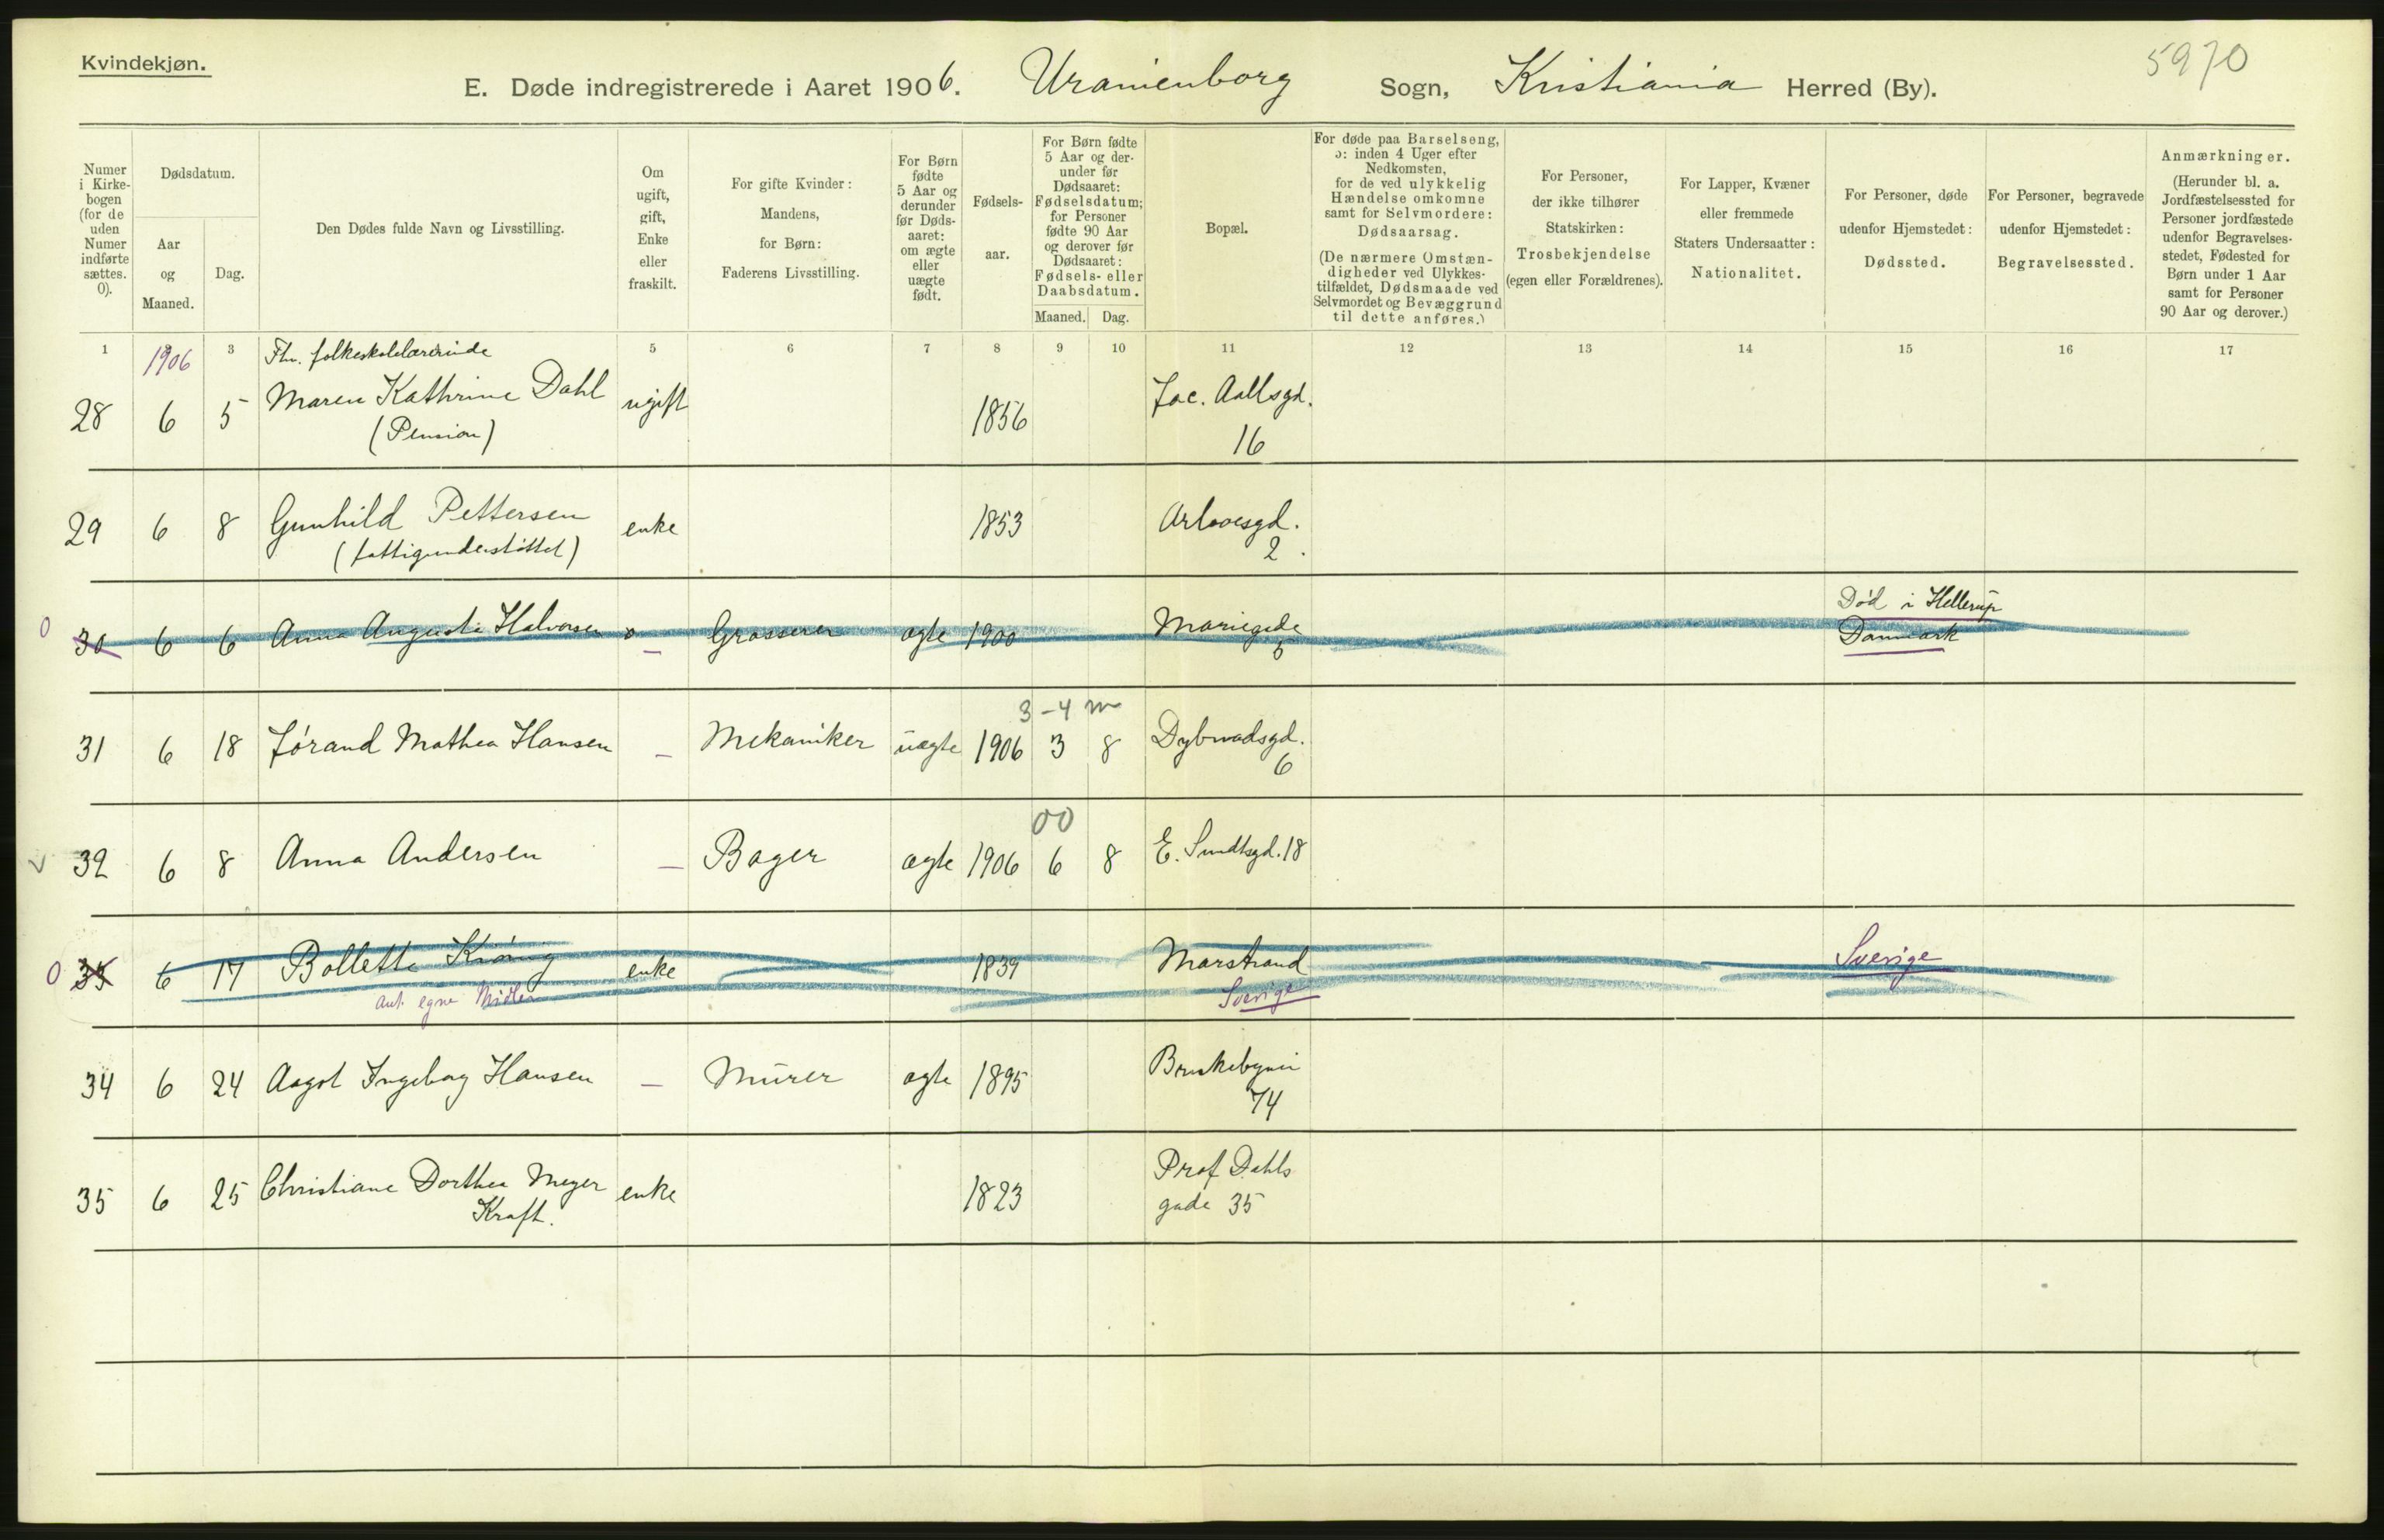 Kvindekjøn.
5970
E. Døde indregistrerede i Aaret 1906. Uranienborg Sogn, Kristiania Herred (By).
Numer i Kirke-bogen (for de uden Numer indførte sættes. 0).
Dødsdatum.
Aar og Maaned.
Dag.
Den Dødes fulde Navn og Livsstilling.
Om ugift, gift, Enke eller fraskilt.
For gifte Kvinder: Mandens, for Børn: Faderens Livsstilling.
For Børn fødte 5 Aar og derunder før Døds-aaret: om ægte eller uægte født.
Fødsels-aar.
For Børn fødte 5 Aar og der-under før Dødsaaret: Fødselsdatum; for Personer fødte 90 Aar og derover før Dødsaaret: Fødsels- eller Daabsdatum.
Maaned. Dag.
Bopæl.
For døde paa Barselseng, ɔ: inden 4 Uger efter Nedkomsten, for de ved ulykkelig Hændelse omkomne samt for Selvmordere: Dødsaarsag.
(De nærmere Omstæn-digheder ved Ulykkes-tilfældet, Dødsmaade ved Selvmordet og Bevæggrund til dette anføres.)
For Personer, der ikke tilhører Statskirken: Trosbekjendelse (egen eller Forældrenes).
For Lapper, Kvæner eller fremmede Staters Undersaatter: Nationalitet.
For Personer, døde udenfor Hjemstedet: Dødssted.
For Personer, begravede udenfor Hjemstedet: Begravelsessted.
Anmærkninger. (Herunder bl. a. Jordfæstelsessted for Personer jordfæstede udenfor Begravelses-stedet, Fødested for Børn under 1 Aar samt for Personer 90 Aar og derover.)
1 3 5 6 7 8 9 10 11 12 13 14 15 16 17
1906 Fhv. folkeskolelærerinde
28 6 5 Maren Kathrine Dahl ugift 1856 Jac. Aallsgd.
(Pension) 16
29 6 8 Gunhild Pettersen enke 1853 Arboesgd.
(fattigunderstøttet) 2.
Død i Hellerup
0 30 6 6 Anna Augusta Halvorsen - Grosserer ægte 1900 Mariegade Danmark
5
3-4 m
31 6 18 Jørand Mathea Hansen - Mekaniker uægte 1906 3 8 Dybwadsgd.
6
00
v 32 6 8 Anna Andersen - Bager ægte 1906 6 8 E. Sundtsgd. 18
0 33 6 17 Bollette enke 1839 Marstrand Sverige
ant. egne Midler Sverige
34 6 24 Aagot Ingeborg Hansen - Murer ægte 1895 Briskebyvei
74
35 6 25 Christiane Dorthea Meyer enke 1823 Prof Dahls
Kraft. gade 35